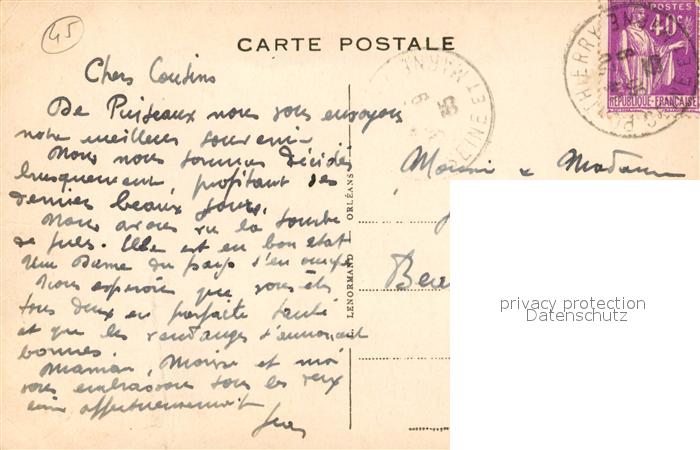 45
CARTE POSTALE
POSTES
40c
RÉPUBLIQUE FRANÇAISE
Chers Cousins
De Puiseaux nous vous envoyons
notre meilleur souvenir
Nous nous sommes décidés
brusquement, profitant des
derniers beaux jours.
Nous avons vu la tombe
de Jules. Elle est en bon état
Une Dame du pays s'en occupe
Nous espérons que vous êtes
tous deux en parfaite santé
et que les vendanges s'annoncent
bonnes.
Maman, Moïse et moi
vous embrassons tous les deux
bien affectueusement
Jean
LENORMAND ORLÉANS
SEINE ET MARNE
Monsieur & Madame
Bea
privacy protection
Datenschutz